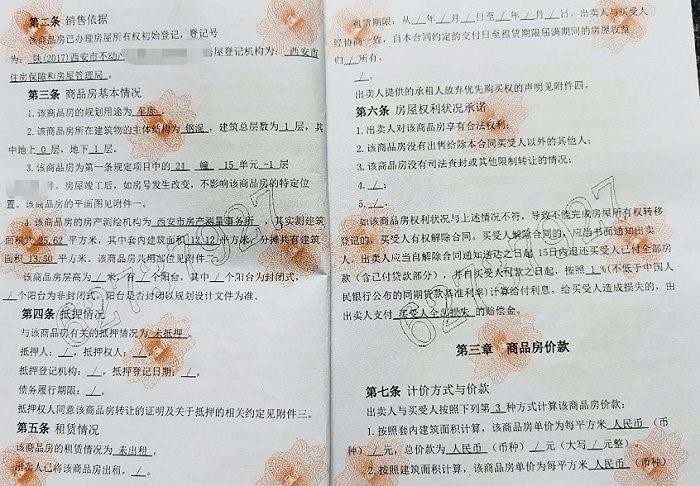 第二条 销售依据
该商品房已办理房屋所有权初始登记，登记号
为：陕(2017)西安市不动产 屋登记机构为：西安市
住房保障和房屋管理局。
第三条 商品房基本情况
1.该商品房的规划用途为 车库。
2.该商品房所在建筑物的主体结构为 钢混，建筑总层数为 1 层，其
中地上 0 层，地下 1 层。
3.该商品房为第一条规定项目中的 24 幢 15 单元 -1 层
号。房屋竣工后，如房号发生改变，不影响该商品房的特定位
置。该商品房的平面图见附件一。
4.该商品房的房产测绘机构为 西安市房产测量事务所，其实测建筑
面积共 25.62 平方米，其中套内建筑面积 12.12 平方米，分摊共有建筑
面积 13.50 平方米。该商品房共用部位见附件二。
该商品房层高为 / 米，有 / 个阳台，其中 / 个阳台为封闭式，
/ 个阳台为非封闭式。阳台是否封闭以规划设计文件为准。
第四条 抵押情况
与该商品房有关的抵押情况为 未抵押。
抵押人：/，抵押权人：/，
抵押登记机构：/，抵押登记日期：/，
债务履行期限：/。
抵押权人同意该商品房转让的证明及关于抵押的相关约定见附件三。
第五条 租赁情况
该商品房的租赁情况为 未出租。
出卖人已将该商品房出租，/。
租赁期限：从 / 年 / 月 / 日至 / 年 / 月 / 日。出卖人与买受人
经协商一致，自本合同约定的交付日至租赁期限届满期间的房屋收益
归 / 所有。
/。
出卖人提供的承租人放弃优先购买权的声明见附件四。
第六条 房屋权利状况承诺
1.出卖人对该商品房享有合法权利；
2.该商品房没有出售给除本合同买受人以外的其他人；
3.该商品房没有司法查封或其他限制转让的情况；
4. /；
5. /；
如该商品房权利状况与上述情况不符，导致不能完成房屋所有权转移
登记的，买受人有权解除合同。买受人解除合同的，应当书面通知出卖
人。出卖人应当自解除合同通知送达之日起 15日内退还买受人已付全部房
款（含已付贷款部分），并自买受人付款之日起，按照 1 %(不低于中国人
民银行公布的同期贷款基准利率)计算给付利息。给买受人造成损失的，由
出卖人支付 买受人全部损失 的赔偿金。
第三章 商品房价款
第七条 计价方式与价款
出卖人与买受人按照下列第 3 种方式计算该商品房价款：
1.按照套内建筑面积计算，该商品房单价为每平方米 人民币（币
种）/ 元，总价款为 人民币（币种）/ 元（大写 / 元整）。
2.按照建筑面积计算，该商品房单价为每平方米 人民币（币种）
62737927
62737927